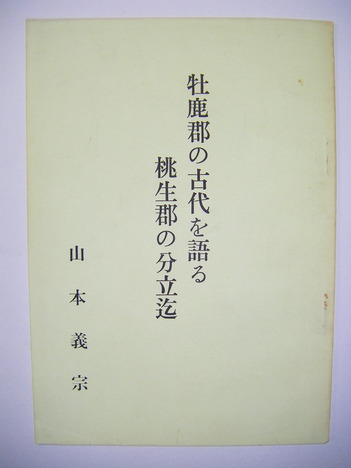 牡鹿郡の古代を語る
桃生郡の分立迄
山本義宗